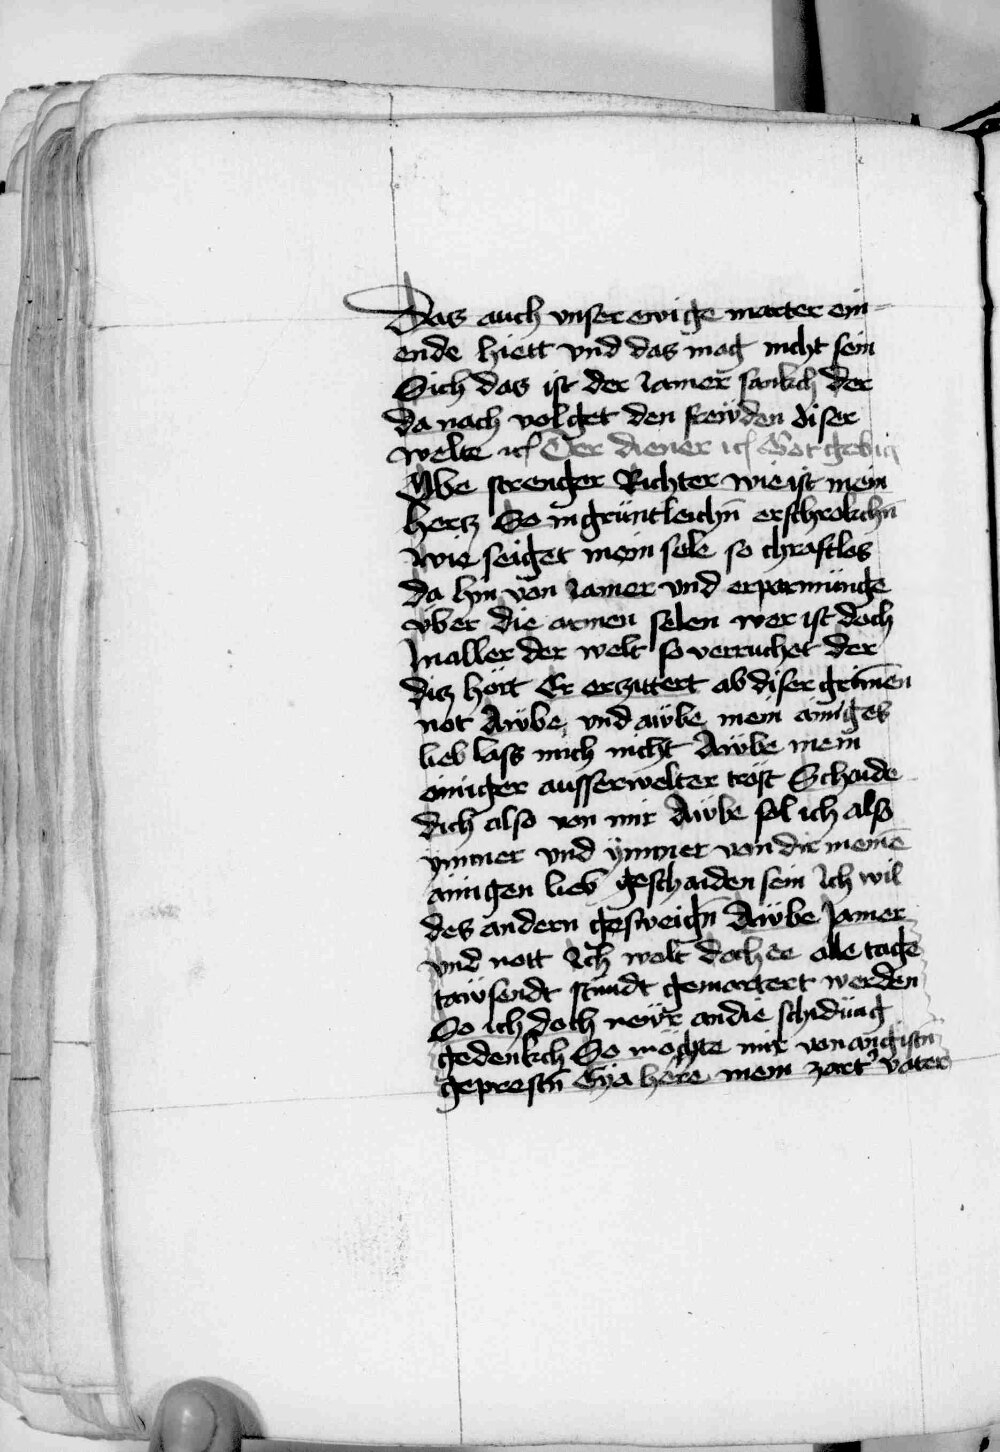 Das auch vnser ewige marter ein-
ende hiett vnd das mag nicht sein
Sich das ist der Jamer sankch der
da nach volget den frewden diser
welte ⁊c Der diener ⁊c Got gebig
Owe strenger Richter wie ist mein
hertz So in grüntleichn̄ erschrokchn̄
wie seiget mein sele so chraftlos
da hin von Jamer vnd erparmünge
vber die armen selen wer ist doch
In aller der welt so verruchet der
ditz hört Er erzittert ab diser grim̄en
not Awbe vnd awbe mein ainiges
lieb lass mich nicht Awbe mein
ainiger ausserwelter tröst Schaide
dich also von mir Awbe sol ich also
ymmer vnd ymmer von dir meinē
ainigen lieb geschaiden sein Ich wil
des andern gesweign̄ Awbe Jamer
vnd nott Ich wolt doch ee alle tage
tawsendt stundt gemartert werden
So ich doch newr an die schidüng
gedenkch So möchte mir von angistn̄
geprestn̄ Eya here mein zart' vater